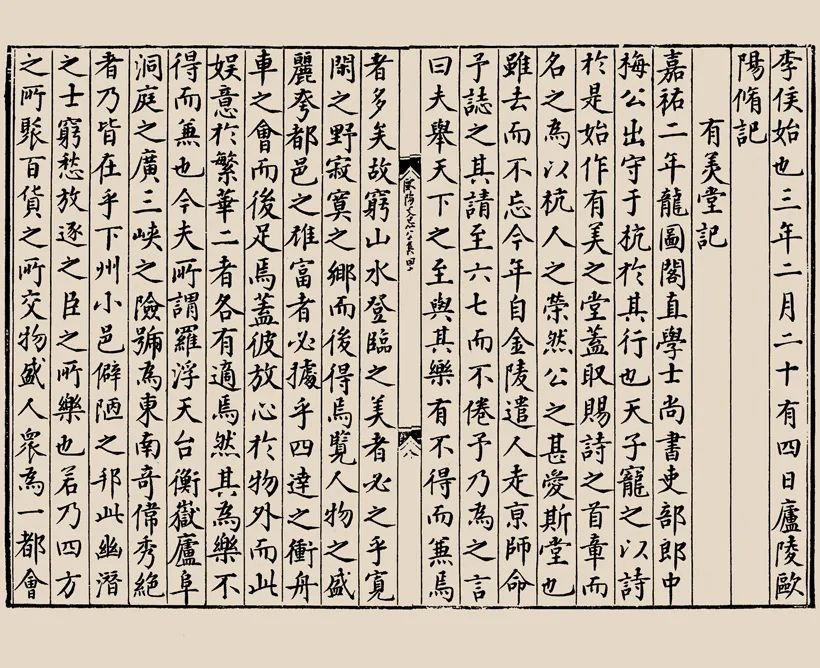 李侯始也三年二月二十有四日廬陵歐
陽脩記
有美堂記
嘉祐二年龍圖閣直學士尚書吏部郎中
梅公出守于杭於其行也天子寵之以詩
於是始作有美之堂蓋取賜詩之首章而
名之為以杭人之榮然公之甚愛斯堂也
雖去而不忘今年自金陵遣人走京師命
予誌之其請至六七而不倦予乃為之言
曰夫舉天下之至與其樂有不得而兼焉
歐陽文忠公集四
八
者多矣故窮山水登臨之美者必之乎寬
閑之野寂寞之鄉而後得焉覽人物之盛
麗夸都邑之雄富者必據乎四達之衝舟
車之會而後足焉蓋彼放心於物外而此
娛意於繁華二者各有適焉然其為樂不
得而兼也今夫所謂羅浮天台衡嶽廬阜
洞庭之廣三峽之險號為東南奇偉秀絶
者乃皆在乎下州小邑僻陋之邦此幽潛
之士窮愁放逐之臣之所樂也若乃四方
之所聚百貨之所交物盛人衆為一都會